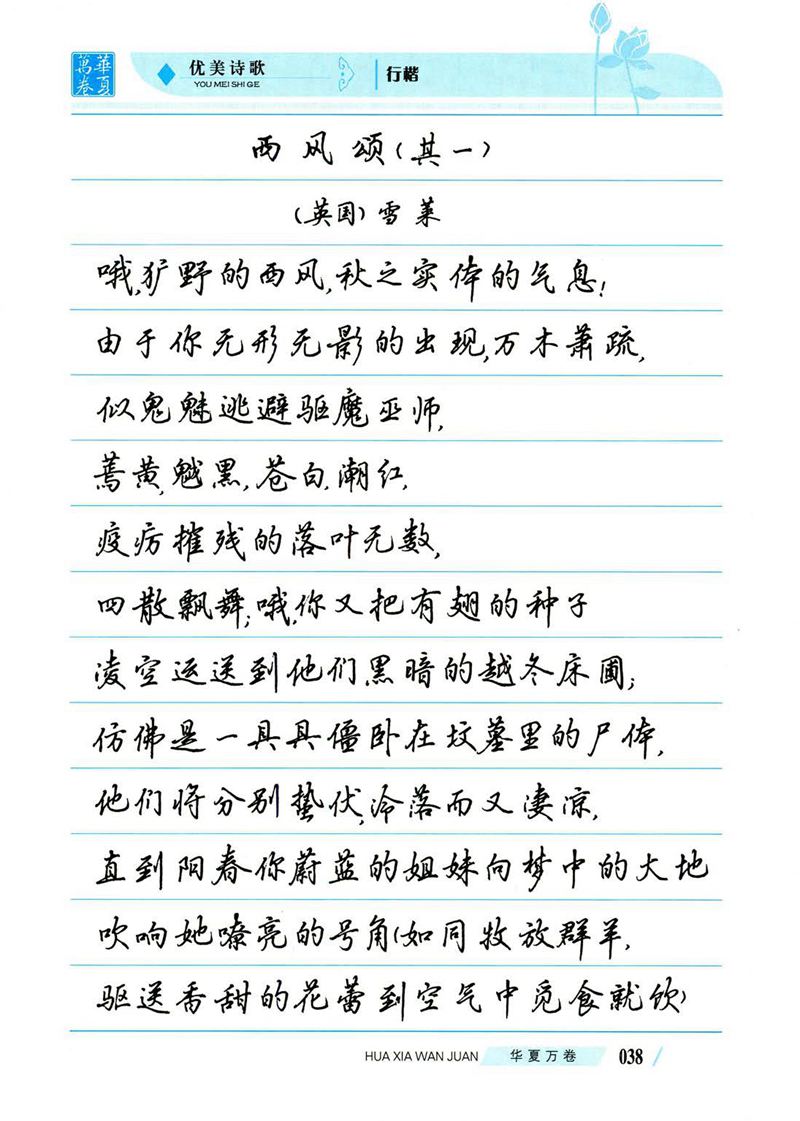 華夏
萬卷
优美诗歌
YOU MEI SHI GE
行楷
西风颂(其一)
(英国)雪莱
哦,犷野的西风,秋之实体的气息!
由于你无形无影的出现,万木萧疏,
似鬼魅逃避驱魔巫师,
蔫黄,魆黑,苍白,潮红,
疫疠摧残的落叶无数,
四散飘舞;哦,你又把有翅的种子
凌空运送到他们黑暗的越冬床圃;
仿佛是一具具僵卧在坟墓里的尸体,
他们将分别蛰伏,冷落而又凄凉,
直到阳春你蔚蓝的姐妹向梦中的大地
吹响她嘹亮的号角(如同牧放群羊,
驱送香甜的花蕾到空气中觅食就饮)
HUA XIA WAN JUAN
华夏万卷
038